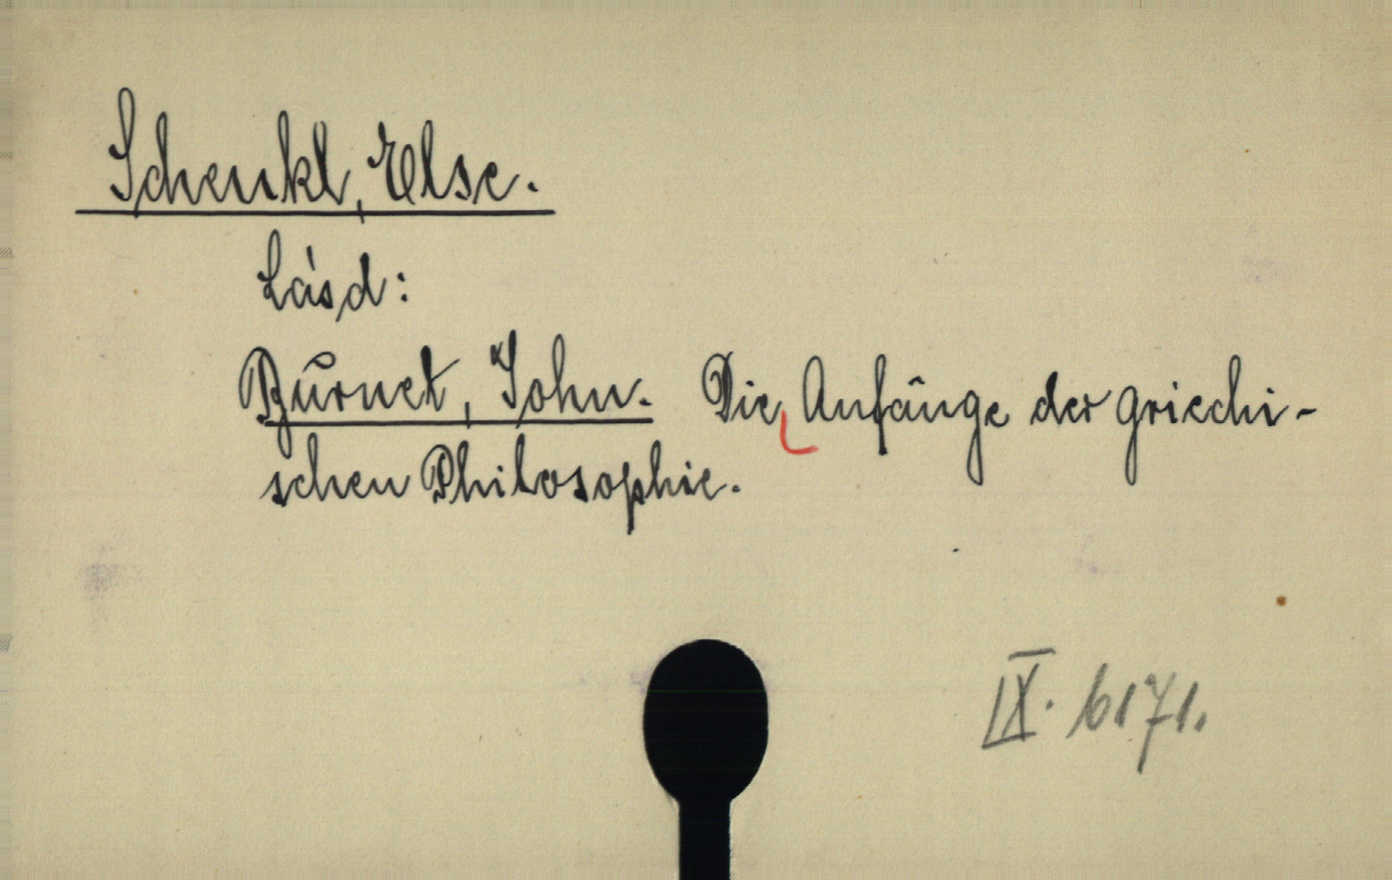 Schenkl, Else.
Lásd:
Burnet, John. Die Anfänge der griechi-
schen Philosophie.
IX. 6171.